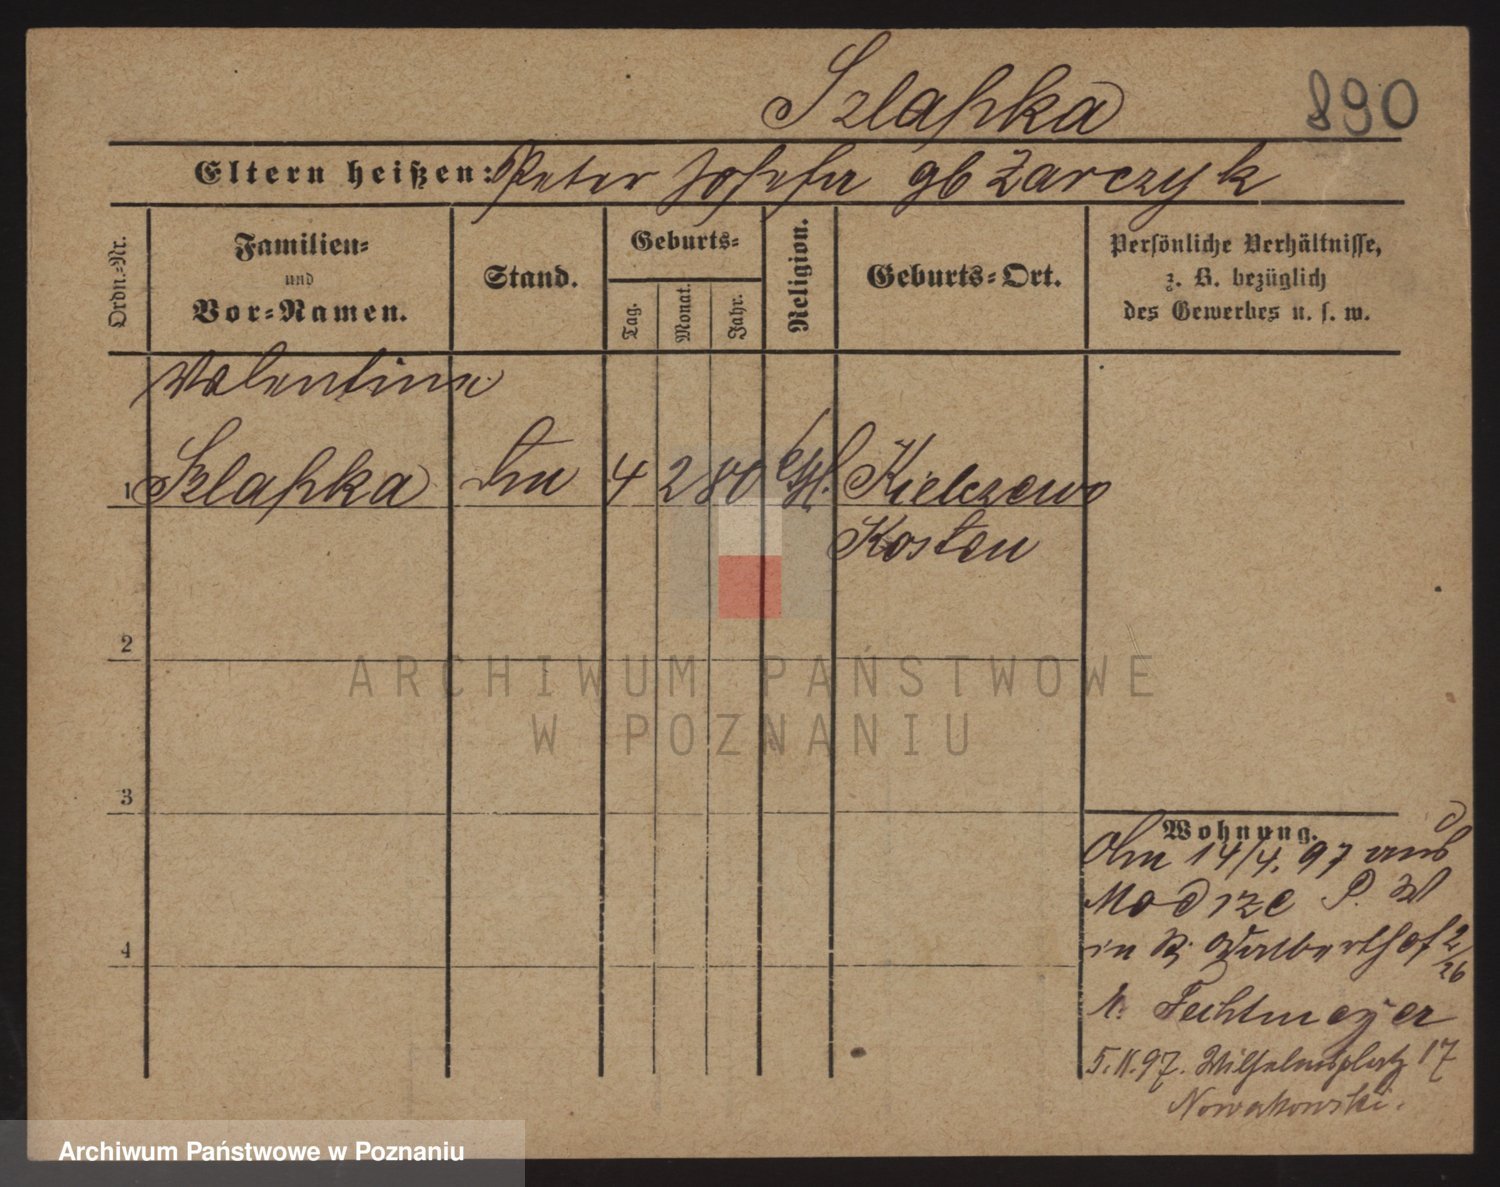 Szlapka
890
Eltern heißen: Peter Josefa gb Żarczyk
Ordn.-Nr.
Familien-
und
Vor-Namen.
Stand.
Geburts-
Tag.
Monat.
Jahr.
Religion.
Geburts-Ort.
Persönliche Verhältnisse,
z. B. bezüglich
des Gewerbes u. s. w.
Valentina
1 Szlapka 4 2 80 Kielczewo
Kosten
2
3
4
Wohnung.
14/4. 97 aus
Modrze P. W
in B. 2/26
Fechtmeyer
5.11.97. Wilhelmsplatz 17
Nowakowski.
ARCHIWUM PAŃSTWOWE
W POZNANIU
Archiwum Państwowe w Poznaniu